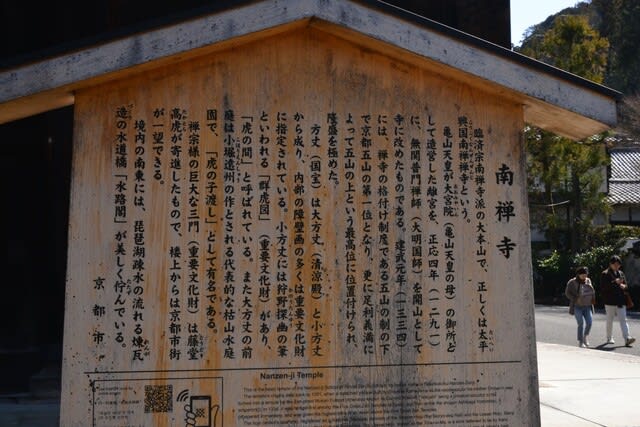 南禅寺
臨済宗南禅寺派の大本山で、正しくは太平
興国南禅禅寺という。
亀山天皇が大宮院（亀山天皇の母）の御所と
して造営した離宮を、正応四年（一二九一）
に、無関普門禅師（大明国師）を開山として
寺に改めたものである。建武元年（一三三四）
には、禅寺の格付け制度である五山の制の下
で京都五山の第一位となり、更に足利義満に
よって五山の上という最高位に位置付けられ、
隆盛を極めた。
方丈（国宝）は大方丈（清涼殿）と小方丈
から成り、内部の障壁画の多くは重要文化財
に指定されている。小方丈には狩野探幽の筆
といわれる「群虎図」（重要文化財）があり、
「虎の間」と呼ばれている。また大方丈の前
庭は小堀遠州の作とされる代表的な枯山水庭
園で、「虎の子渡し」として有名である。
禅宗様の巨大な三門（重要文化財）は藤堂
高虎が寄進したもので、楼上からは京都市街
が一望できる。
境内の南東には、琵琶湖疏水の流れる煉瓦
造の水道橋「水路閣」が美しく佇んでいる。
京都市
Nanzen-ji Temple